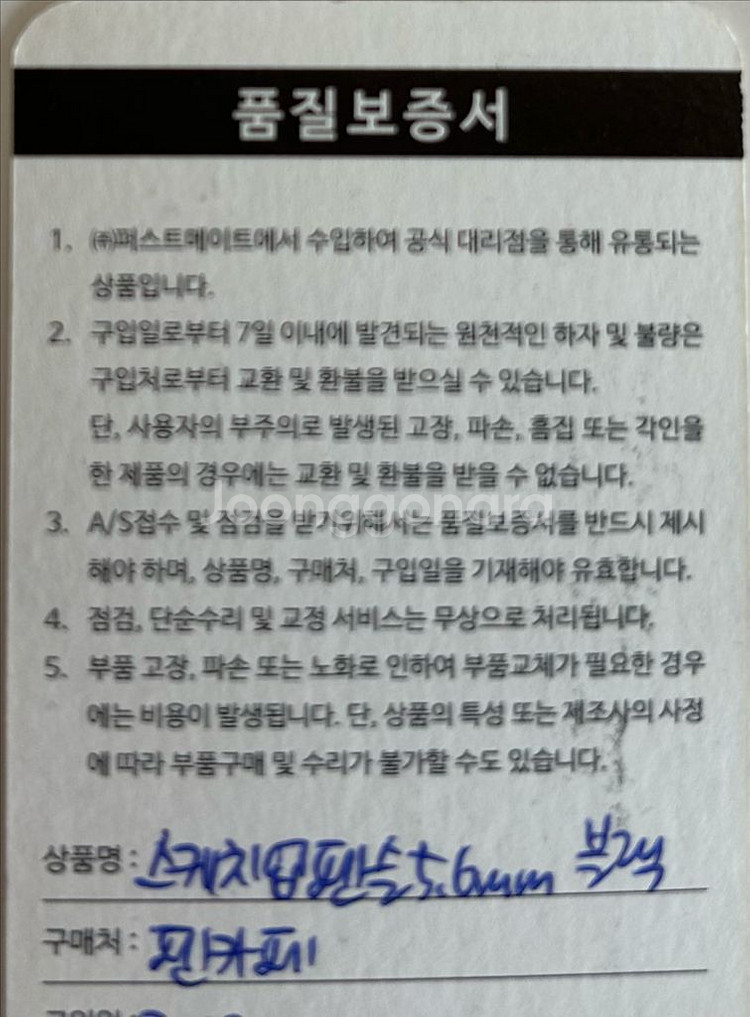 품질보증서
1. ㈜퍼스트메이트에서 수입하여 공식 대리점을 통해 유통되는
상품입니다.
2. 구입일로부터 7일 이내에 발견되는 원천적인 하자 및 불량은
구입처로부터 교환 및 환불을 받으실 수 있습니다.
단, 사용자의 부주의로 발생된 고장, 파손, 흠집 또는 각인을
한 제품의 경우에는 교환 및 환불을 받을 수 없습니다.
joonggonara
3. A/S접수 및 점검을 받기위해서는 품질보증서를 반드시 제시
해야 하며, 상품명, 구매처, 구입일을 기재해야 유효합니다.
4. 점검, 단순수리 및 교정 서비스는 무상으로 처리됩니다.
5. 부품 고장, 파손 또는 노화로 인하여 부품교체가 필요한 경우
에는 비용이 발생됩니다. 단, 상품의 특성 또는 제조사의 사정
에 따라 부품구매 및 수리가 불가할 수도 있습니다.
상품명 : 스케치업펜슬 5.6mm 블랙
구매처 : 펜카페